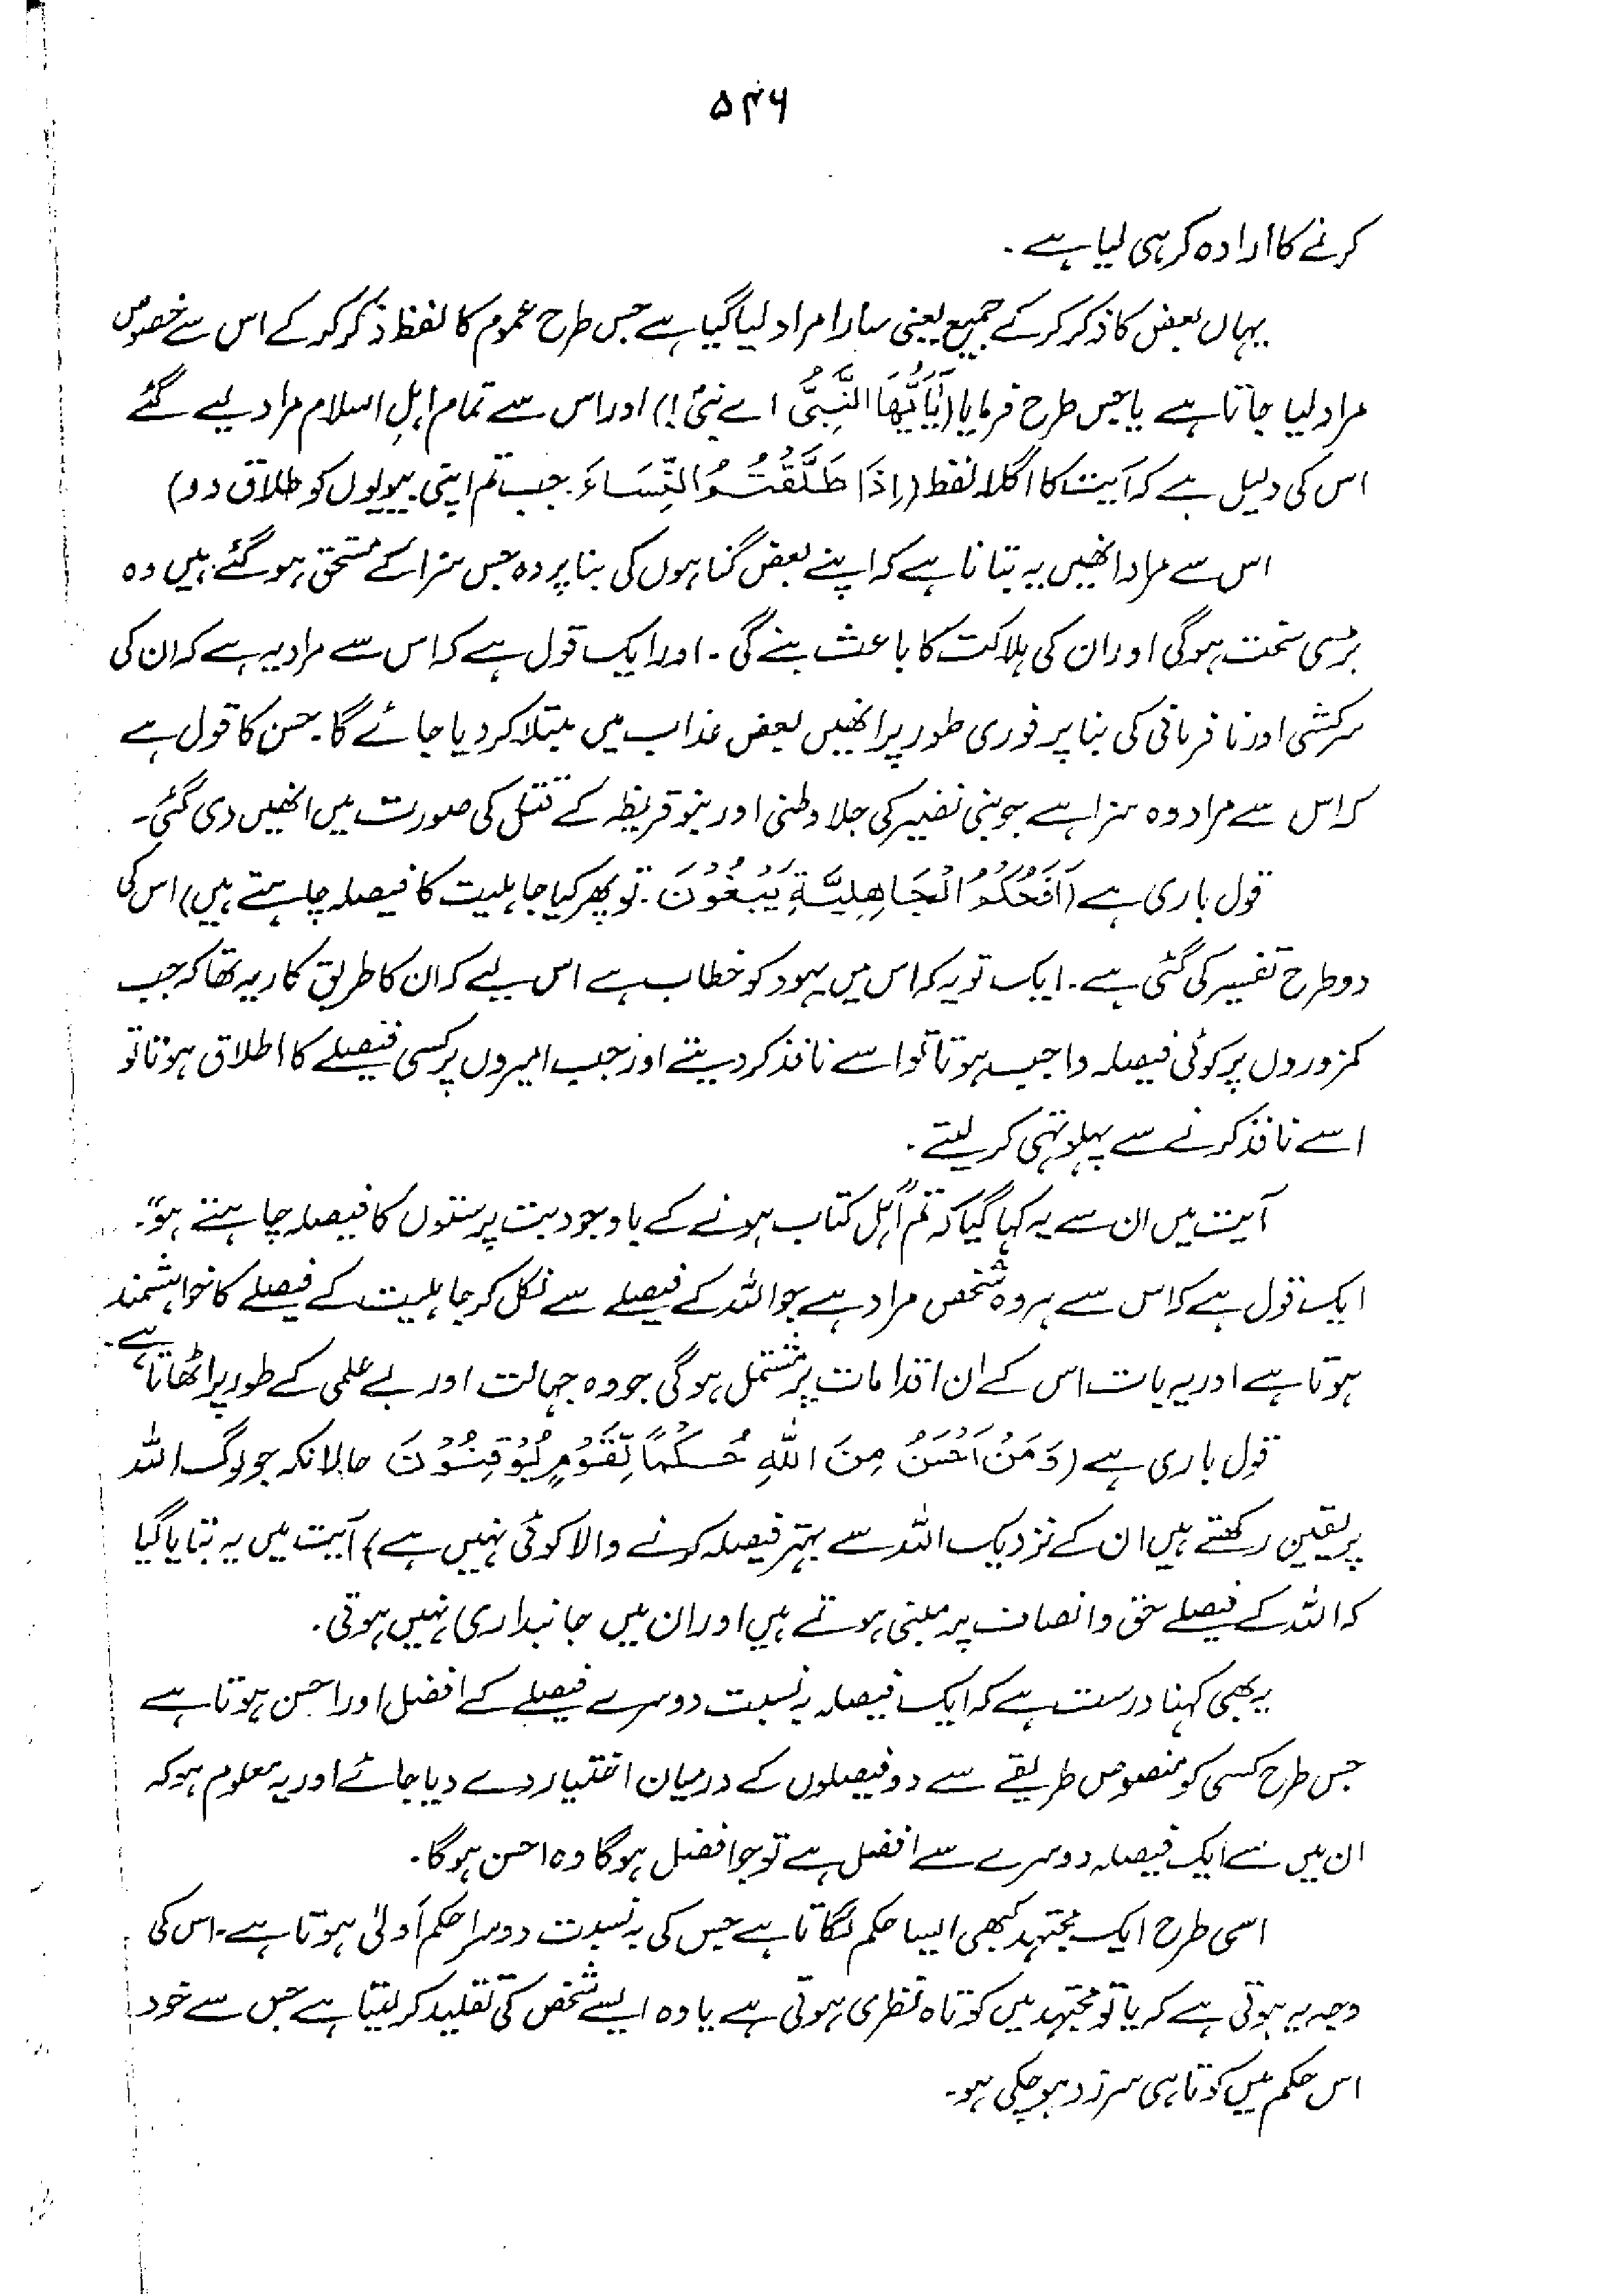 ۵۴۶
کرنے کا ارادہ کر ہی لیا ہے۔
یہاں بعض کا ذکر کر کے جمیع یعنی سارا مراد لیا گیا ہے جس طرح عموم کا لفظ ذکر کر کے اس سے خصوص
مراد لیا جاتا ہے یا جس طرح فرمایا (يٰٓاَيُّهَا النَّبِىُّ اے نبیؐ!) اور اس سے تمام اہلِ اسلام مراد لیے گئے
اس کی دلیل ہے کہ آیت کا اگلا لفظ (اِذَا طَلَّقْتُمُ النِّسَاءَ۔ جب تم اپنی بیویوں کو طلاق دو)
اس سے مراد انھیں یہ بتانا ہے کہ اپنے بعض گناہوں کی بنا پر وہ جس سزا کے مستحق ہو گئے ہیں وہ
بڑی سخت ہو گی اور ان کی ہلاکت کا باعث بنے گی۔ اور ایک قول ہے کہ اس سے مراد یہ ہے کہ ان کی
سرکشی اور نا فرمانی کی بنا پر فوری طور پر انھیں بعض عذاب میں مبتلا کر دیا جائے گا۔ حسن کا قول ہے
کہ اس سے مراد وہ سزا ہے جو بنی نضیر کی جلا وطنی اور بنو قریظہ کے قتل کی صورت میں انھیں دی گئی۔
قول باری ہے (اَفَحُكْمَ الْجَاهِلِيَّةِ يَبْغُوْنَ۔ تو پھر کیا جاہلیت کا فیصلہ چاہتے ہیں) اس کی
دو طرح تفسیر کی گئی ہے۔ ایک تو یہ کہ اس میں یہود کو خطاب ہے اس لیے کہ ان کا طریق کار یہ تھا کہ جب
کمزوروں پر کوئی فیصلہ واجب ہوتا تو اسے نافذ کر دیتے اور جب امیروں پر کسی فیصلے کا اطلاق ہوتا تو
اسے نافذ کرنے سے پہلو تہی کر لیتے۔
آیت میں ان سے یہ کہا گیا کہ تم "اہل کتاب ہونے کے باوجود بت پرستوں کا فیصلہ چاہتے ہو"۔
ایک قول ہے کہ اس سے ہر وہ شخص مراد ہے جو اللہ کے فیصلے سے نکل کر جاہلیت کے فیصلے کا خواہشمند
ہوتا ہے اور یہ بات اس کے ان اقدامات پر مشتمل ہو گی جو وہ جہالت اور بے علمی کے طور پر اٹھاتا ہے۔
قول باری ہے (وَمَنْ اَحْسَنُ مِنَ اللّٰهِ حُكْمًا لِّقَوْمٍ يُّوْقِنُوْنَ حالانکہ جو لوگ اللہ
پر یقین رکھتے ہیں ان کے نزدیک اللہ سے بہتر فیصلہ کرنے والا کوئی نہیں ہے) آیت میں یہ بتایا گیا
کہ اللہ کے فیصلے حق و انصاف پر مبنی ہوتے ہیں اور ان میں جانبداری نہیں ہوتی۔
یہ بھی کہنا درست ہے کہ ایک فیصلہ بہ نسبت دوسرے فیصلے کے افضل اور احسن ہوتا ہے
جس طرح کسی کو منصوص طریقے سے دو فیصلوں کے درمیان اختیار دے دیا جائے اور یہ معلوم ہو کہ
ان میں سے ایک فیصلہ دوسرے سے افضل ہے تو جو افضل ہو گا وہ احسن ہو گا۔
اسی طرح ایک مجتہد کبھی ایسا حکم لگاتا ہے جس کی بہ نسبت دوسرا حکم اَولیٰ ہوتا ہے۔ اس کی
وجہ یہ ہوتی ہے کہ یا تو مجتہد میں کوتاہ نظری ہوتی ہے یا وہ ایسے شخص کی تقلید کر لیتا ہے جس سے خود
اس حکم میں کوتاہی سرزد ہو چکی ہو۔